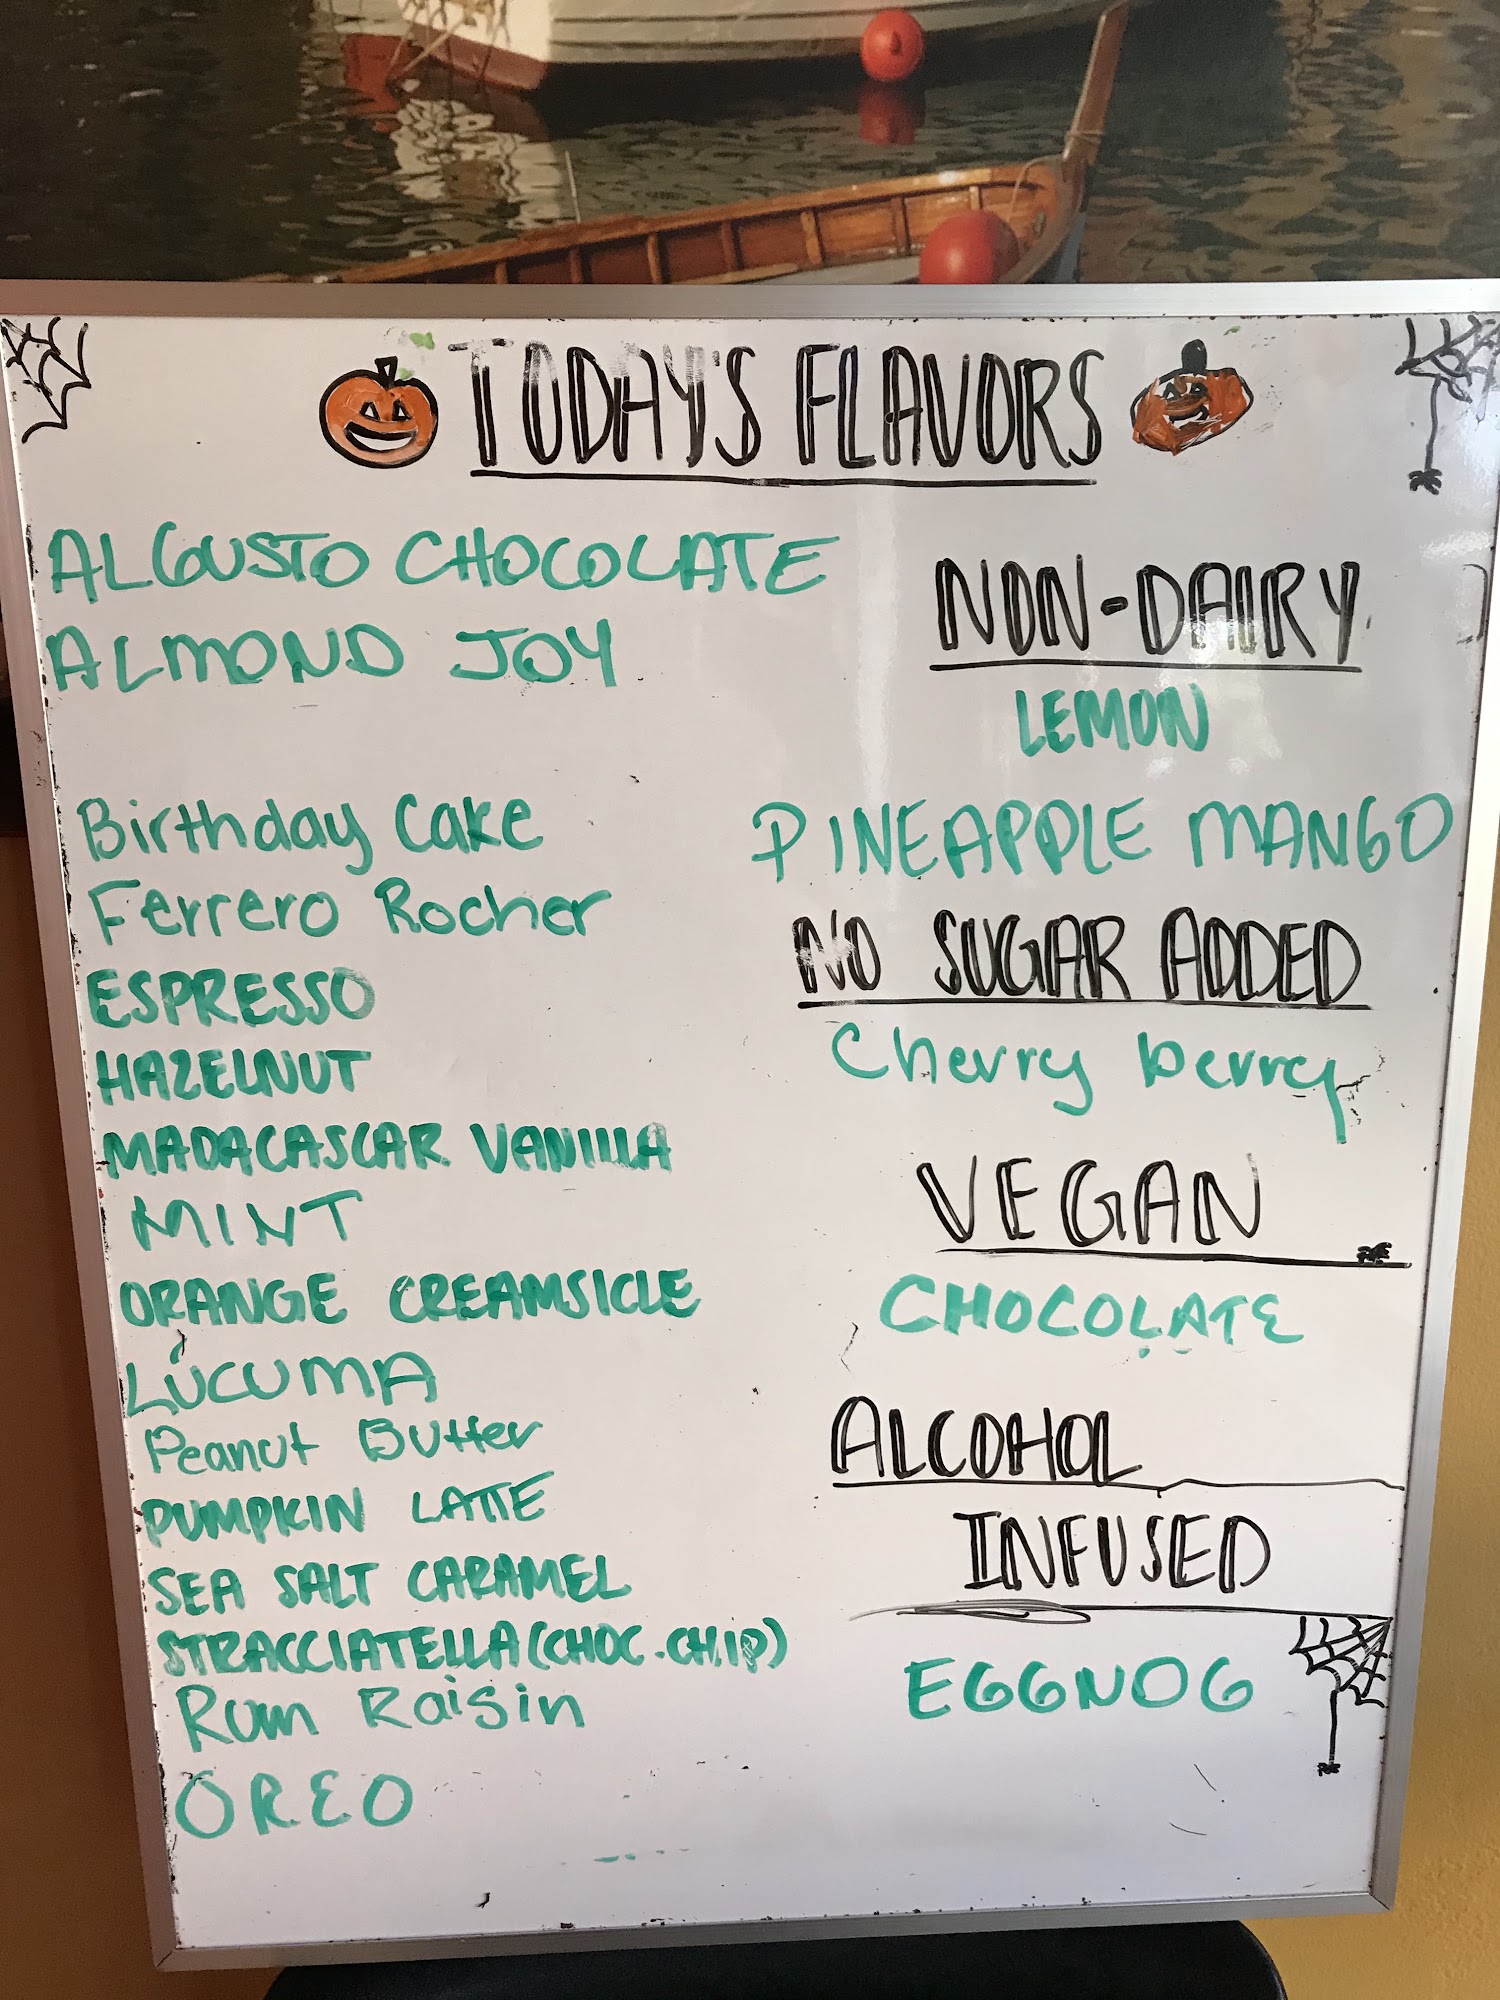 TODAY'S FLAVORS
ALGUSTO CHOCOLATE
ALMOND JOY
Birthday Cake
Ferrero Rocher
ESPRESSO
HAZELNUT
MADAGASCAR VANILLA
MINT
ORANGE CREAMSICLE
LÚCUMA
Peanut Butter
PUMPKIN LATTE
SEA SALT CARAMEL
STRACCIATELLA (CHOC. CHIP)
Rum Raisin
OREO
NON-DAIRY
LEMON
PINEAPPLE MANGO
NO SUGAR ADDED
Cherry berry
VEGAN
CHOCOLATE
ALCOHOL
INFUSED
EGGNOG